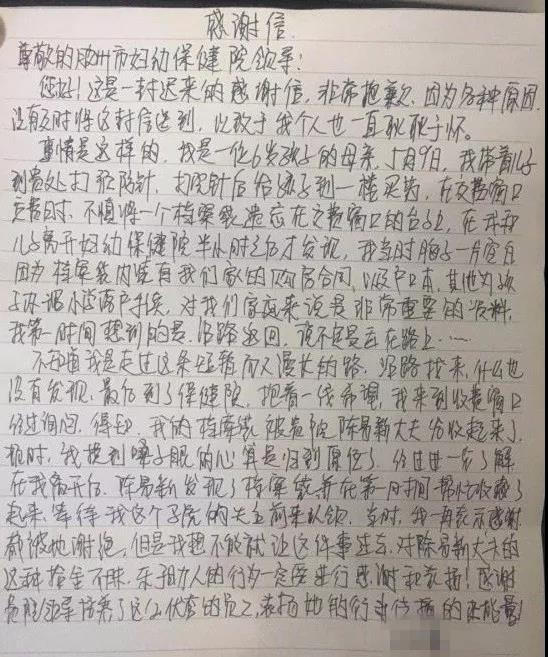 感谢信
尊敬的沧州市妇幼保健院领导:
您好!这是一封迟来的感谢信,非常抱歉,因为各种原因,
没有及时将这封信送到,以致于我个人也一直耿耿于怀。
事情是这样的,我是一位6岁孩子的母亲,1月9日,我带着儿子
到贵处打预防针,打完针后给孩子到一楼买药,在交费窗口
交费时,不慎将一个档案袋遗忘在交费窗口的台子上,在我和
儿子离开妇幼保健院半小时之后才发现,我当时脑子一片空白
因为档案袋内装有我们家的购房合同,以及户口本,其他为孩
子办理小学落户手续,对我们家庭来说是非常重要的资料,
我第一时间想到的是沿路返回,说不定是丢在路上……
不知道我是走过这条短暂而又漫长的路,沿路找来,什么也
没有发现,最后到了保健院,抱着一线希望,我来到收费窗口
经过询问,得知,我的档案袋被贵院陈易新大夫给收起来了,
那时,我提到嗓子眼的心算是归到原位了,经过进一步了解
在我离开后,陈易新发现了档案袋并在第一时间帮忙收藏了
起来,等待我这个丢魂的失主前来认领,当时,我一再表示感谢
都被她谢绝,但是我想不能就让这件事过去,对陈易新大夫的
这种拾金不昧,乐于助人的行为一定要进行感谢和表扬!感谢
贵院领导培养了这么优秀的员工,表扬她的行为传播的正能量!